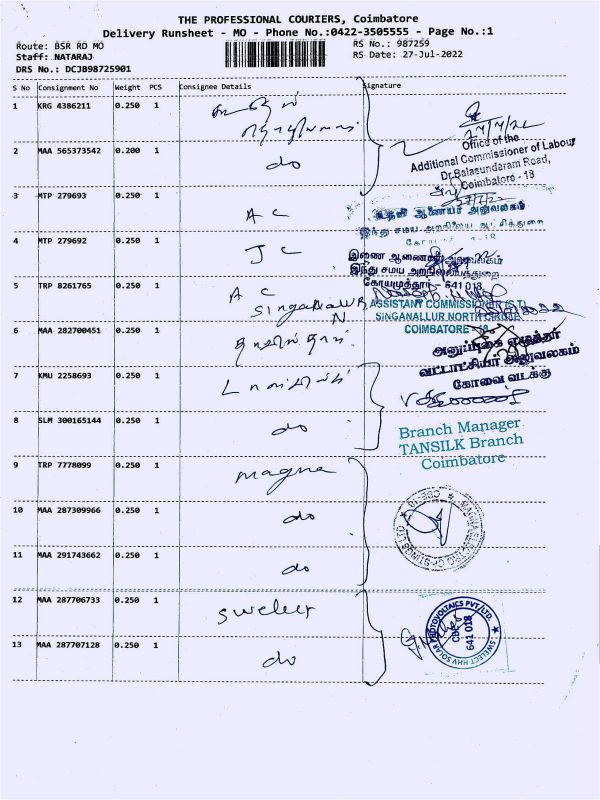 THE PROFESSIONAL COURIERS, Coimbatore
Delivery Runsheet - MO - Phone No.:0422-3505555 - Page No.:1
Route: BSR RD MO
RS No.: 987259
Staff: NATARAJ
RS Date: 27-Jul-2022
DRS No.: DCJB98725901
S No Consignment No Weight PCS Consignee Details Signature
1 KRG 4386211 0.250 1
27/7/22
2 MAA 565373542 0.200 1 do
Office of the
Additional Commissioner of Labour
Dr.Balasundaram Road,
Coimbatore - 18
3 MTP 279693 0.250 1 A C
உதவி ஆணையர் அலுவலகம்
இந்து சமய அறநிலைய ஆட்சித்துறை
4 MTP 279692 0.250 1 J C
இணை ஆணையர் அலுவலகம்
இந்து சமய அறநிலையத்துறை
கோயமுத்தூர் - 641 018
5 TRP 8261765 0.250 1 A C
Singanallur
N.
ASSISTANT COMMISSIONER (S.T)
SINGANALLUR NORTH CIRCLE
COIMBATORE - 18
6 MAA 282700451 0.250 1
வட்டாட்சியர் அலுவலகம்
கோவை வடக்கு
7 KMU 2258693 0.250 1
8 SLM 300165144 0.250 1 do
Branch Manager
TANSILK Branch
Coimbatore
9 TRP 7778099 0.250 1 magna
10 MAA 287309966 0.250 1 do
11 MAA 291743662 0.250 1 do
12 MAA 287706733 0.250 1 swelect
SWELECT HHV SOLAR PHOTOVOLTAICS PVT.LTD.
CBE
641 018
13 MAA 287707128 0.250 1 do